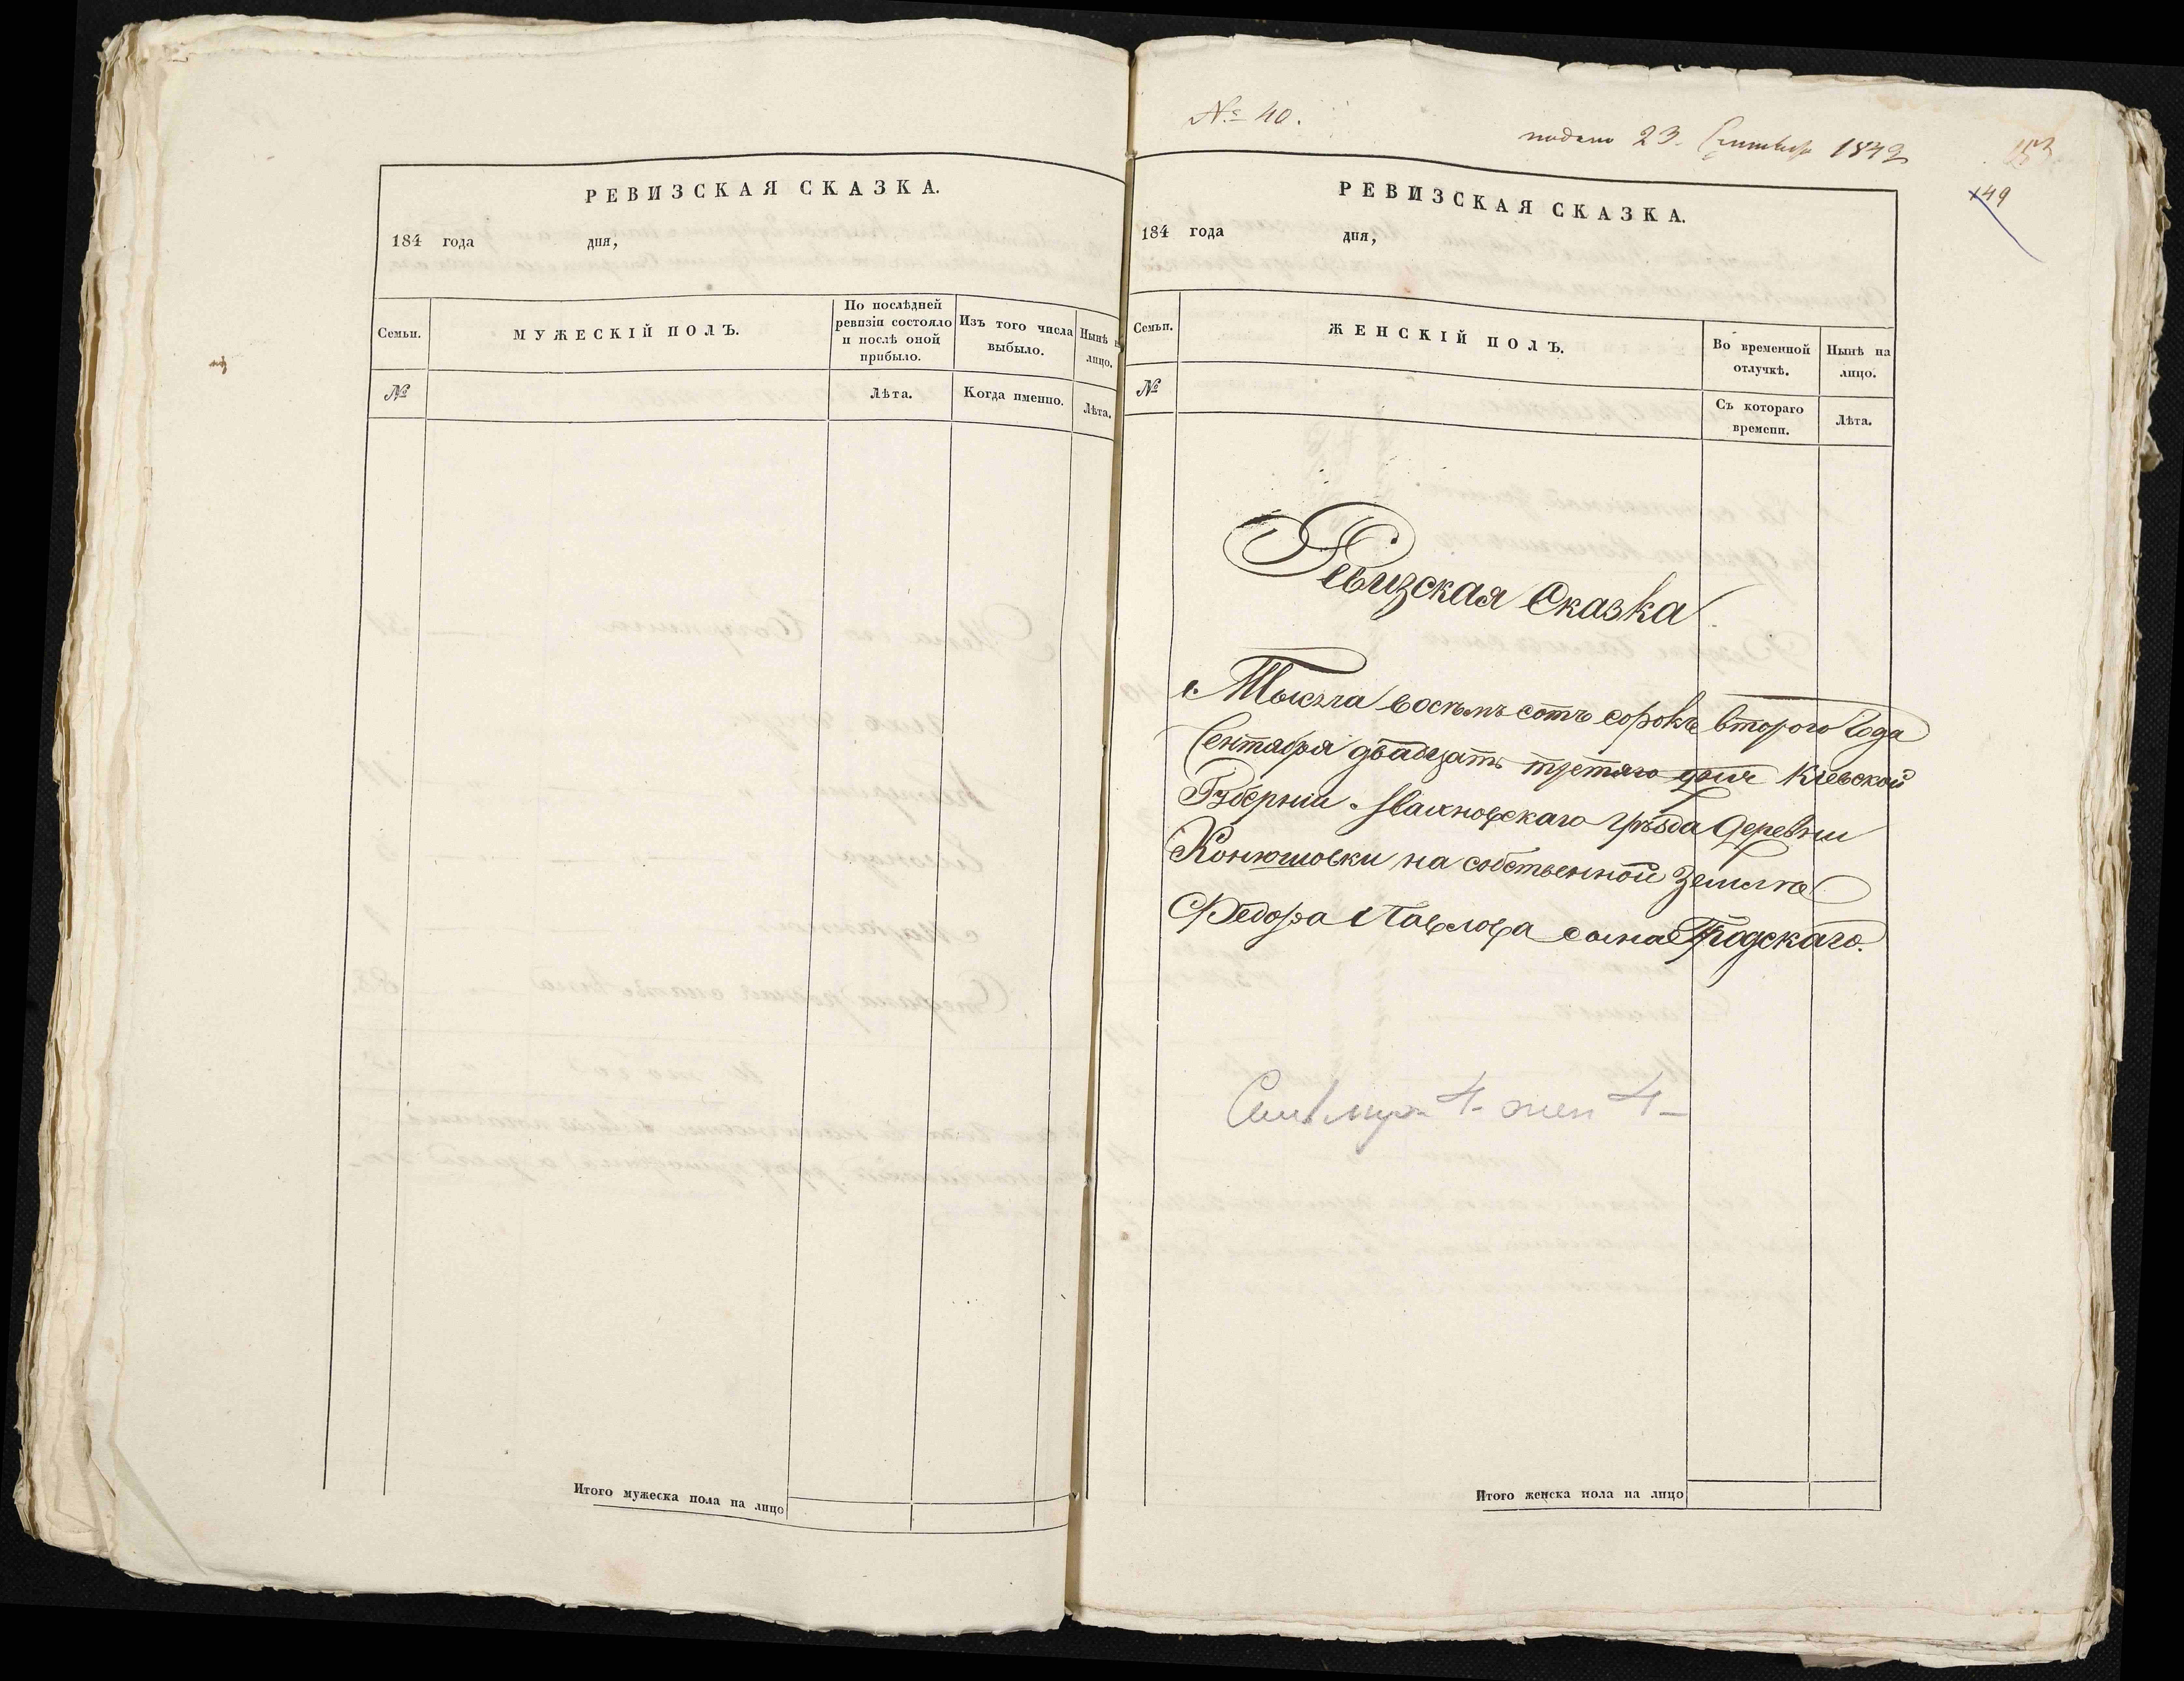 РЕВИЗСКАЯ СКАЗКА.
184 года дня,
Семьи.
МУЖЕСКІЙ ПОЛЪ.
По послѣдней
ревизіи состояло
и послѣ оной
прибыло.
Изъ того числа
выбыло.
Нынѣ
лицо.
№
Лѣта.
Когда именно.
Лѣта.
Итого мужеска пола на лицо
№ 40.
подано 23. Сентября 1842
153
149
РЕВИЗСКАЯ СКАЗКА.
184 года дня,
Семьи.
ЖЕНСКІЙ ПОЛЪ.
Во временной
отлучкѣ.
Нынѣ на
лицо.
№
Съ котораго
времени.
Лѣта.
Ревизская Сказка
Тысяча восѣмъ сотъ сорокъ второго Года
Сентабря двадцать третяго дня Кіевской
Губерніи Махновскаго уѣзда Деревни
Конюшовки на собственной Землѣ
Федора Павлова сына Гродскаго.
муж 4- жен 4-
Итого женска пола на лицо